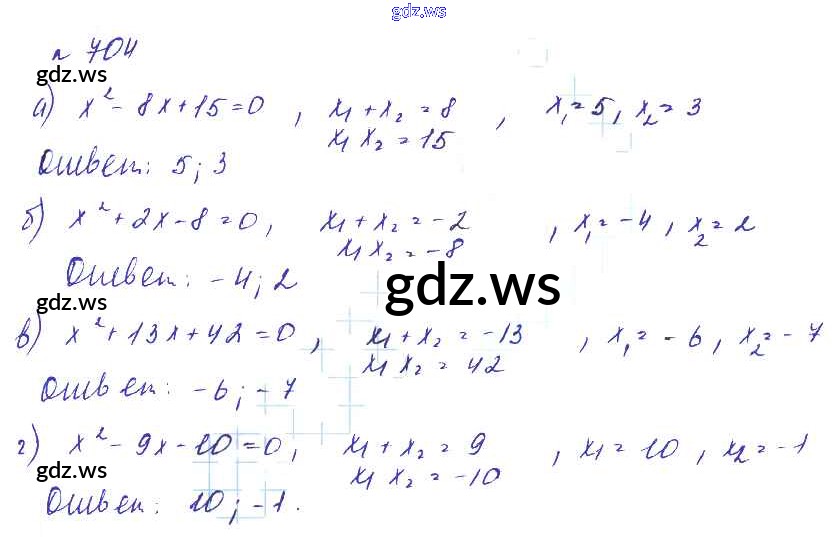 gdz.ws
n 704
gdz.ws
а) x² - 8x + 15 = 0 , x₁ + x₂ = 8 , x₁ = 5, x₂ = 3
x₁ x₂ = 15
Ответ: 5; 3
б) x² + 2x - 8 = 0, x₁ + x₂ = -2 , x₁ = -4, x₂ = 2
x₁ x₂ = -8
Ответ: -4; 2
gdz.ws
gdz.ws
в) x² + 13x + 42 = 0 , x₁ + x₂ = -13 , x₁ = -6, x₂ = -7
x₁ x₂ = 42
Ответ: -6; -7
г) x² - 9x - 10 = 0, x₁ + x₂ = 9 , x₁ = 10 , x₂ = -1
gdz.ws
x₁ x₂ = -10
Ответ: 10; -1.